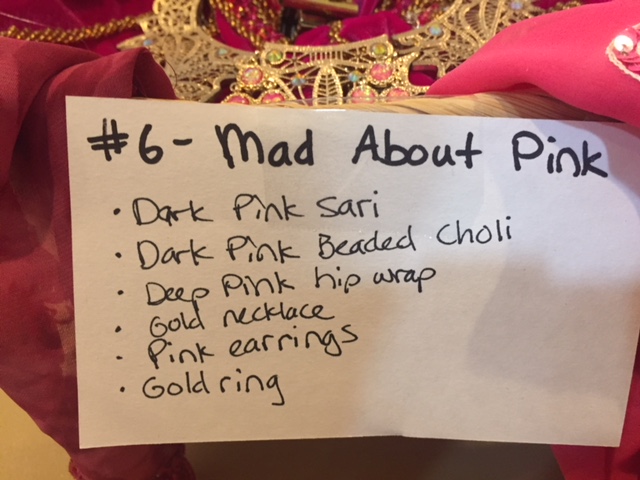 #6 - Mad About Pink
• Dark Pink Sari
• Dark Pink Beaded Choli
• Deep Pink hip wrap
• Gold necklace
• Pink earrings
• Gold ring